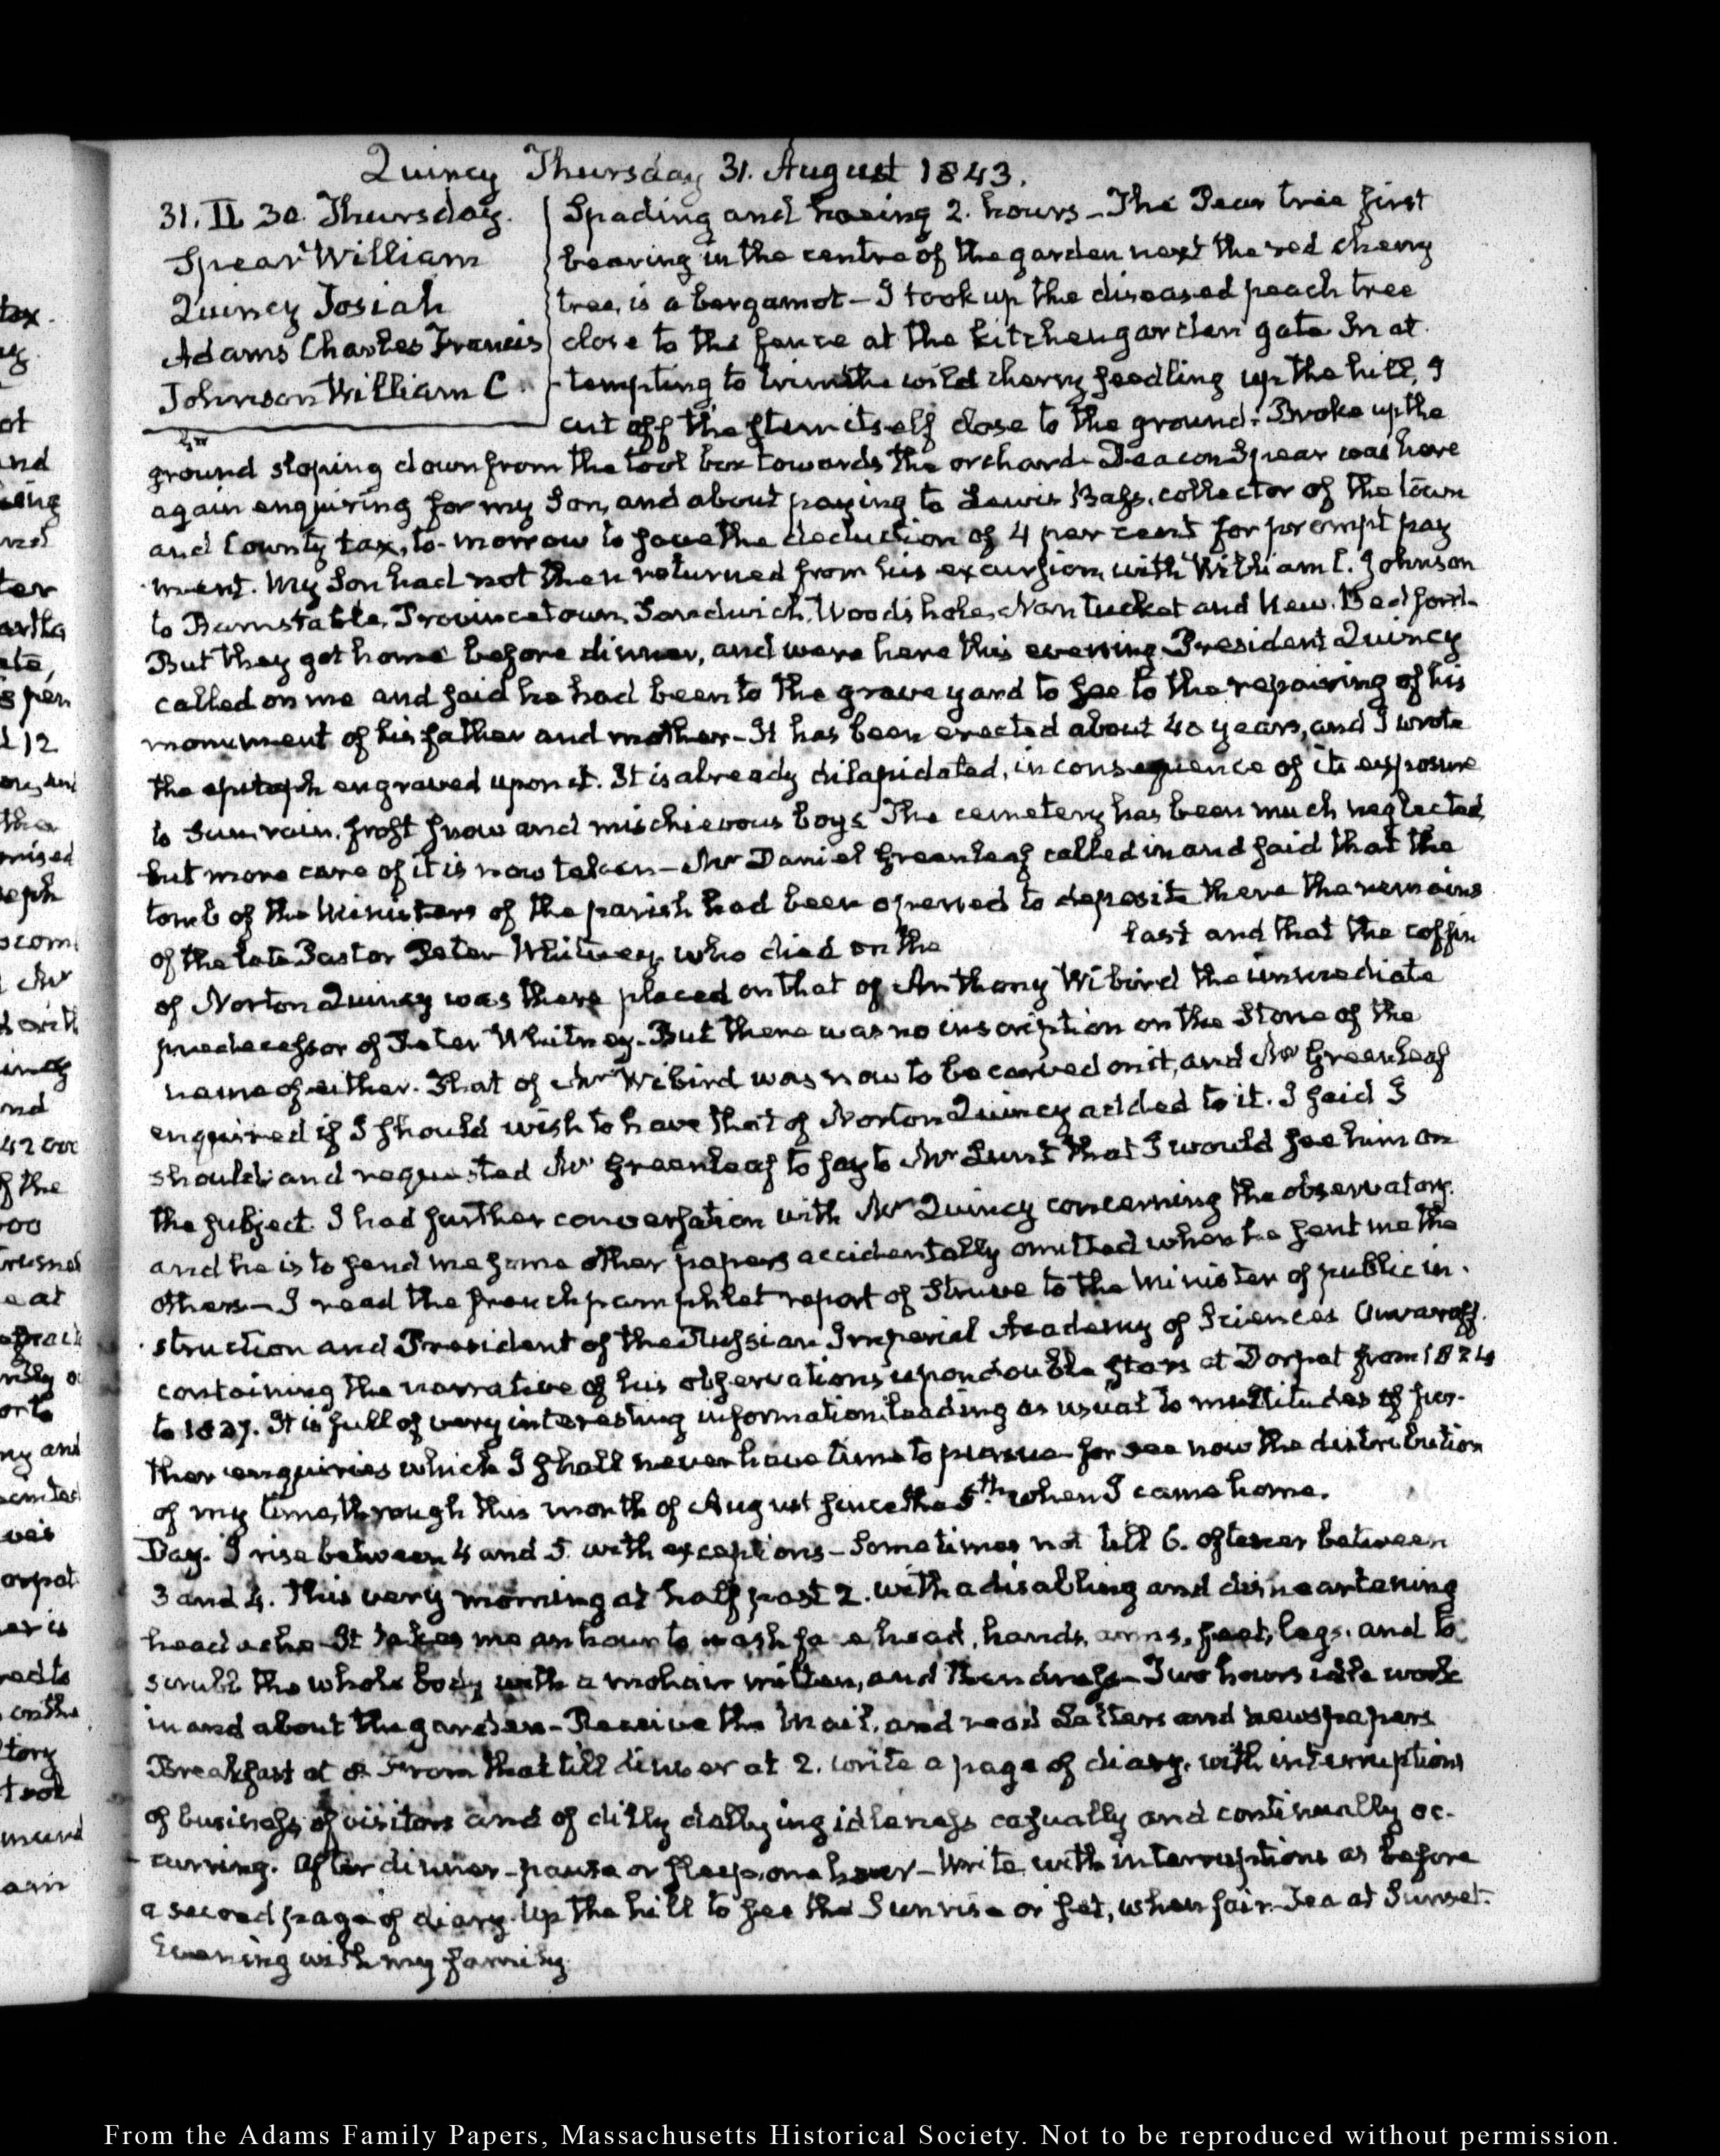 Quincy Thursday 31. August 1843.
31. II 30. Thursday.
Spear William
Quincy Josiah
Adams Charles Francis
Johnson William C.
Spading and hoeing 2. hours – The Pear tree first
bearing in the centre of the garden next the red cherry
tree, is a bergamot – I took up the diseased peach tree
close to the fence at the kitchen garden gate In at
tempting to trim the wild cherry seedling up the hill, I
cut off the stem itself close to the ground. Broke up the
ground sloping down from the tool box towards the orchard – Deacon Spear was here
again enquiring for my Son, and about paying to Lewis Bass, collector of the town
and County tax, to-morrow to save the deduction of 4 per cent for prompt pay
ment. My Son had not then returned from his excursion, with William C. Johnson
to Barnstable, Provincetown, Sandwich, Woods hole, Nantucket and New. Bedford.
But they got home before dinner, and were here this evening. President Quincy
called on me and said he had been to the graveyard to see to the repairing of his
monument of his father and mother – It has been erected about 40 years, and I wrote
the epitaph engraved upon it. It is already dilapidated, in consequence of its exposure
to Sun, rain, frost snow and mischievous boys The cemetery has been much neglected,
but more care of it is now taken – Mr Daniel Greenleaf called in and said that the
tomb of the Ministers of the parish had been opened to deposite there the remains
of the late Pastor Peter Whitney who died on the last and that the coffin
of Norton Quincy was there placed on that of Anthony Wibird the immediate
predecessor of Peter Whitney. But there was no inscription on the Stone of the
name of either. That of Mr Wibird was now to be carved on it, and Mr Greenleaf
enquired if I should wish to have that of Norton Quincy added to it. I said I
should; and requested Mr Greenleaf to say to Mr Lunt that I would see him on
the subject. I had further conversation with Mr Quincy concerning the observatory.
and he is to send me some other papers accidentally omitted when he sent me the
others – I read the french pamphlet report of Struve to the Minister of public in.
struction and President of the Russian Imperial Academy of Sciences Ouvaroff.
containing the narrative of his observations upon double stars at Dorpat from 1824
to 1827. It is full of very interesting information, leading as usual to multitudes of fur.
ther enquiries which I shall never have time to pursue – for see now the distribution
of my time, through this month of August since the 5th. when I came home.
Day. I rise between 4 and 5 with exceptions – Sometimes not till 6. oftener between
3 and 4. This very morning at half past 2. with a disabling and disheartening
head ache – It takes me an hour to wash face, head, hands, arms, feet, legs. and to
scrubb the whole body with a mohair mitten, and then dress – Two hours I work
in and about the garden – Receive the Mail, and read Letters and newspapers
Breakfast at 8. From that till dinner at 2. write a page of diary, with interruptions
of business of visitors and of dilly dallying idleness casually and continually oc-
curring. After dinner – pause or sleep, one hour – Write, with interruptions as before
a second page of diary. Up the hill to see the Sun rise or set, when fair – Tea at Sunset.
Evening with my family
From the Adams Family Papers, Massachusetts Historical Society. Not to be reproduced without permission.